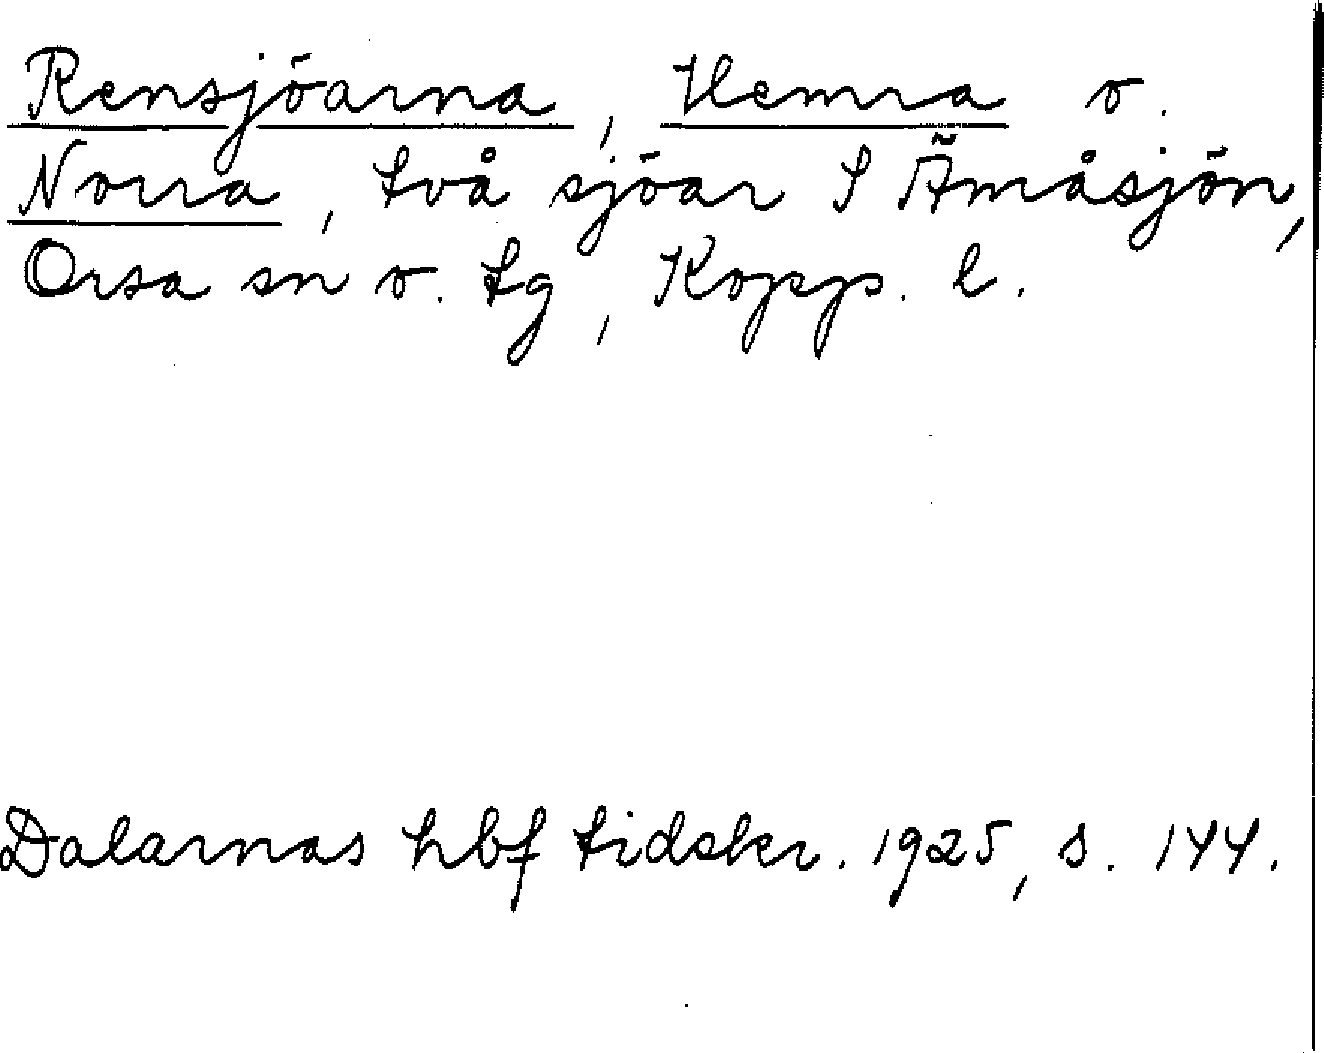 Rensjöarna, Hemra o.
Norra, två sjöar S Ämåsjön,
Orsa sn o. tg, Kopp. l.
Dalarnas hbf tidskr. 1925, s. 144.